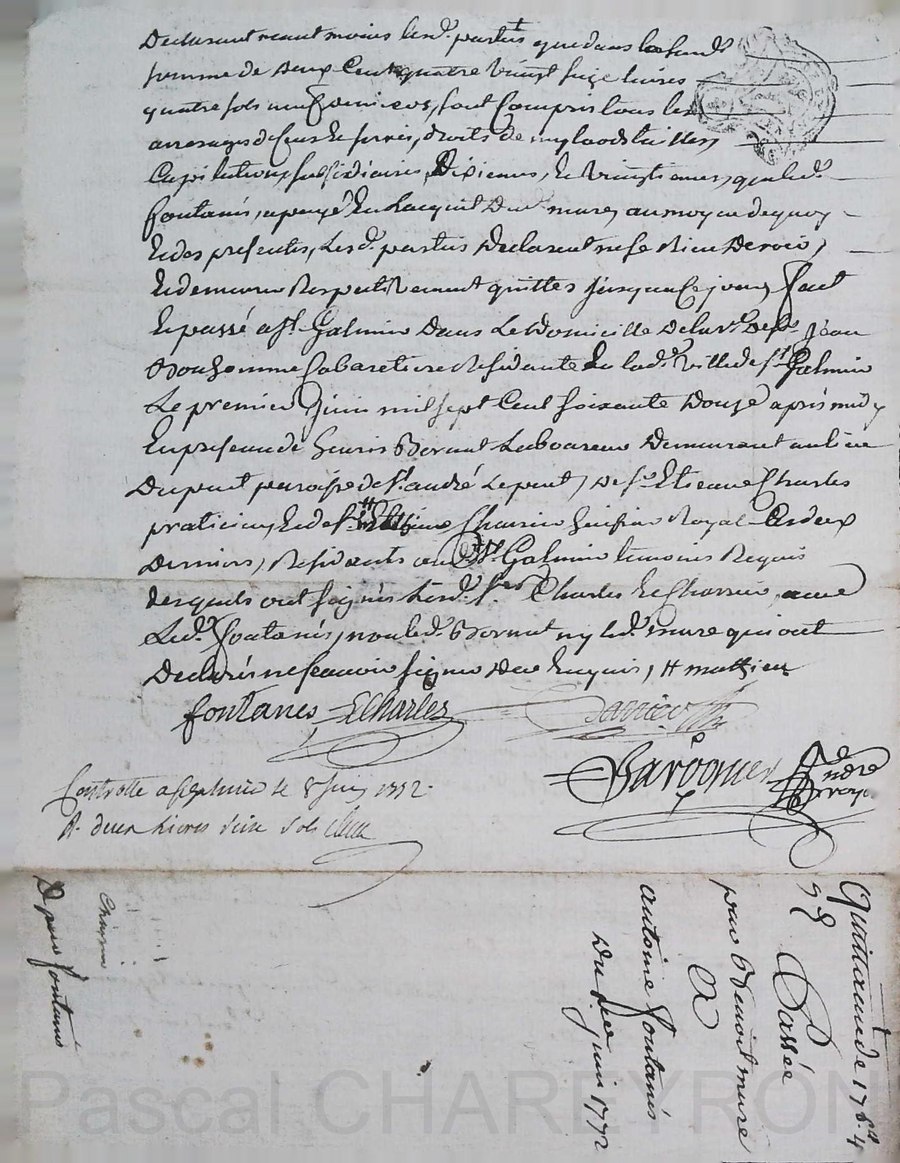 Declarant neantmoins lesd. parties que dans lad.
somme de deux Cent quatre vingt seize livres
quatre sols neuf deniers, sont Compris tous les
arrerages de Cens et servis, droits de mylaods tailles
Capitations, subsidiaires, Dixiemes, et vingtiemes, que led.
fontanés, a payé en Lacquit dud. mure, au moyen de quoy
et des presentes, Les d. parties declarent ne se Rien devoir,
et demeurer Respectivement quittes Jusques a Ce jour, fait
et passé a St. Galmier dans Le domicille de la ve. de Jean
Bonhomme Cabaretiere Residante en lad. Ville de St. Galmier
Le premier Juin mil sept Cent soixante douze après midy
en presence de Bornat Laboureur Demeurant au lieu
Dupont paroisse de St. andré Le puit, de Sr. Etienne Charles
praticien, et de Sr. huissier Royal Ces deux
derniers, Residants aud. St. Galmier temoins Requis
desquels ont signés Lesd. Srs. Charles et avec
Led. fontanés, non led. Bornat ny led. mure qui ont
Declarés ne scavoir signer de ce Enquis, # mathieu
fontanes ECharles
Baroonier andre
Controllé a St galmier le 8 juin 1772.
R. deux livres seize sols
Quittance de 176ll 4
9d Passée
par Benoit mure
A
antoine fontanés
Du 1er juin 1772
D pour fontanés
Pascal CHAREYRON